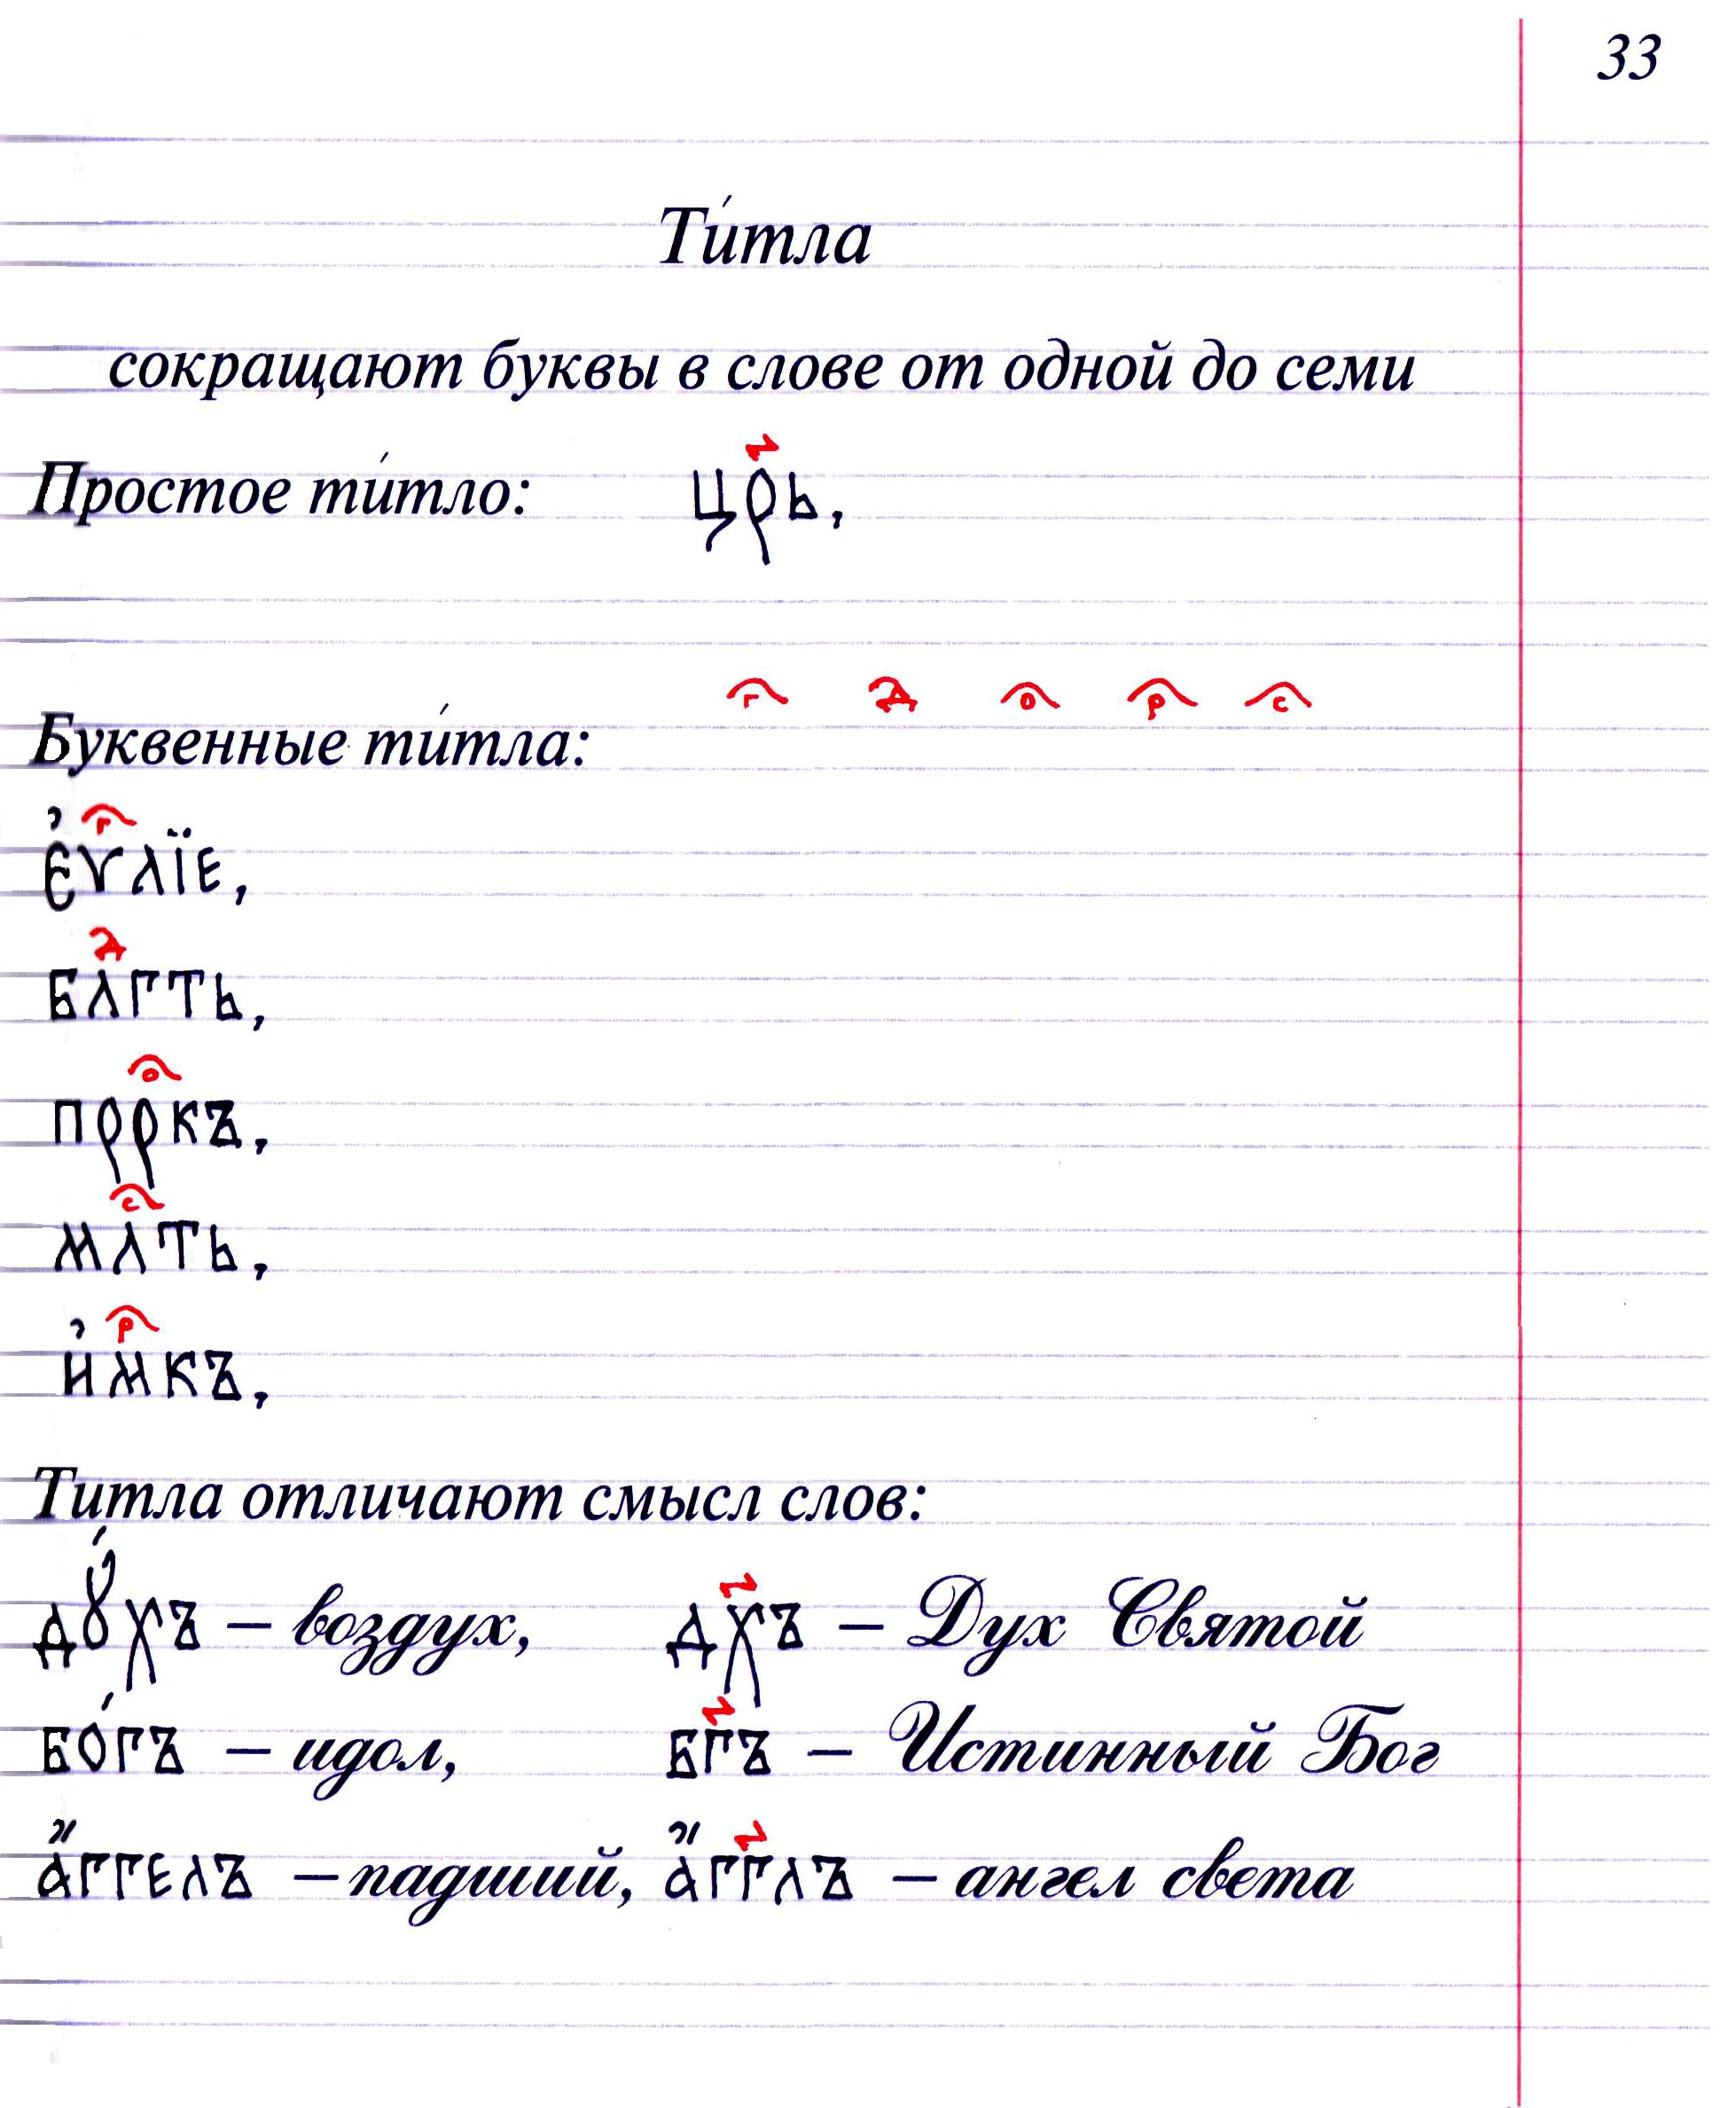 33
Ти́тла
сокращают буквы в слове от одной до семи
Простое ти́тло: цр҃ь,
Буквенные ти́тла: ⷢ҇ ⷣ ⷪ҇ ⷬ҇ ⷭ҇
є҆ѵⷢ҇лїе,
блⷣгть,
прⷪ҇ркъ,
млⷭ҇ть,
и҆мⷬ҇къ,
Ти́тла отличают смысл слов:
дꙋ́хъ – воздух, дх҃ъ – Дух Святой
бо́гъ – идол, бг҃ъ – Истинный Бог
а҆́ггелъ – падший, а҆́гг҃лъ – ангел света